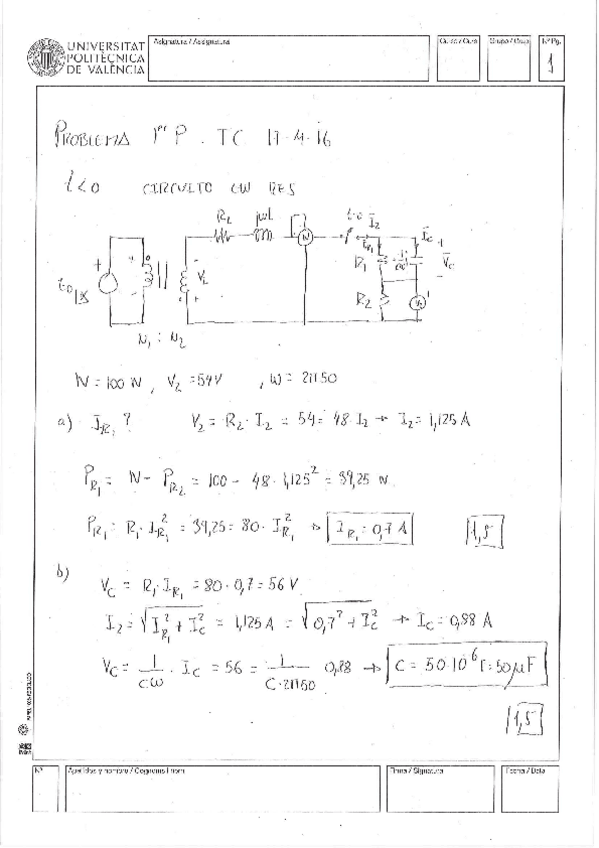 UNIVERSITAT
POLITÈCNICA
DE VALÈNCIA
Asignatura / Assignatura
Curso / Curs
Grupo / Grup
Nº Pg.
1
PROBLEMA 1er P. TC 17-4-16
t<0 CIRCUITO EN RES
R_L jωL W t=0 I_2 I_C
+ V_2 I_R1 R_1 V_C
R_2
N_1 : N_2
W = 100 W, V_2 = 54V, ω = 2π50
a) I_R1 ? V_2 = R_2 · I_2 = 54 = 48 · I_2 → I_2 = 1,125 A
P_R1 = W - P_R2 = 100 - 48 · 1,125² = 39,25 W.
P_R1 = R_1 · I_R1² = 39,25 = 80 · I_R1² → I_R1 = 0,7 A 1,5
b) V_C = R_1 · I_R1 = 80 · 0,7 = 56 V
I_2 = √(I_R1² + I_C²) = 1,125 A = √(0,7² + I_C²) → I_C = 0,88 A
V_C = 1/(Cω) · I_C = 56 = 1/(C·2π50) 0,88 → C = 50·10⁻⁶ F = 50 μF
1,5
Nº
Apellidos y nombre / Cognoms i nom
Firma / Signatura
Fecha / Data